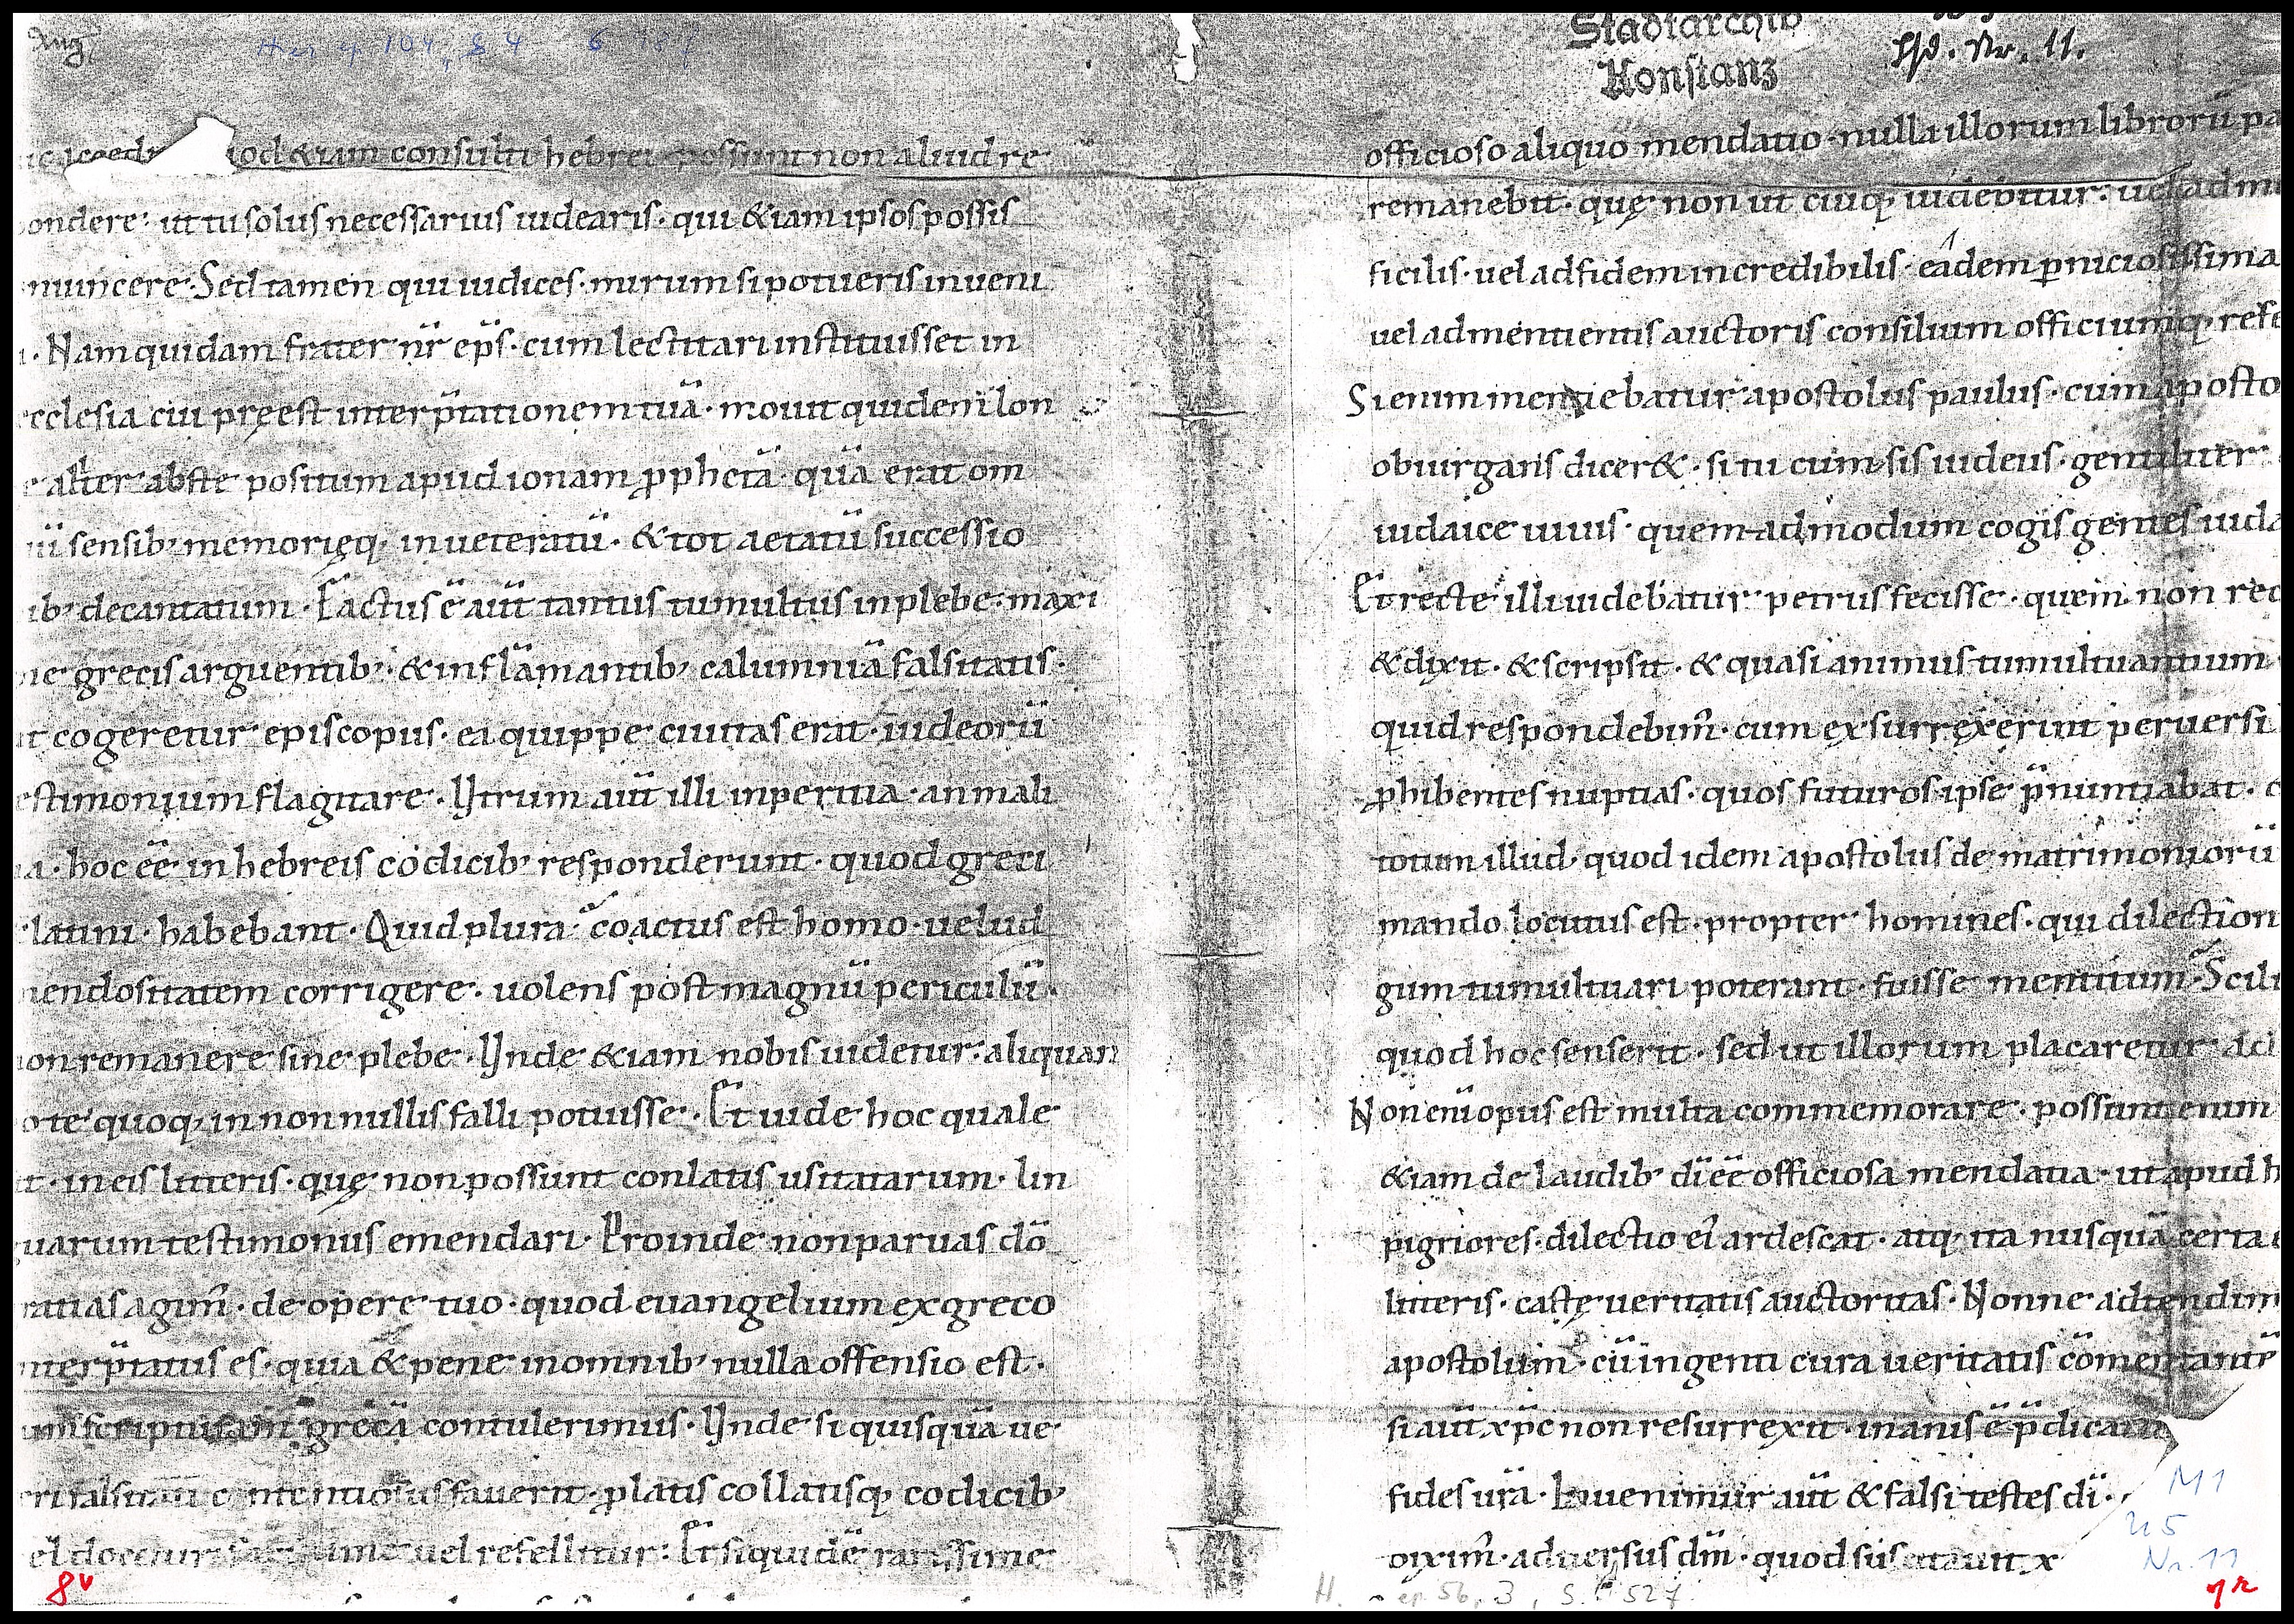 Aug
Stadtarchiv
Konstanz
Hsd. Nr. 11.
&iam consulti hebrei possunt non aliud re
ondere: ut tu solus necessarius uidearis· qui &iam ipsos possis
nuincere· Sed tamen qui iudices· mirum si potueris inueni
· Nam quidam frater nr̄ ep̄s· cum lectitari instituisset in
cclesia cui pręest interp̄tationem tuā· mouit quidem lon
e aliter abste positum apud ionam ꝓphetā quā erat om
ū sensib; memorięq; inueteratū· & tot aetatū successio
ib; decantatum· Factus ē aut̄ tantus tumultus in plebe· maxi
e grecis arguentib;· & inflāmantib; calumniā falsitatis·
t cogeretur episcopus· ea quippe ciuitas erat· iudeorū
estimonium flagitare· Utrum aut̄ illi inperitia· an mali
a· hoc eē in hebreis codicib; responderunt· quod greci
latini· habebant· Quid plura· coactus est homo· uelud
endositatem corrigere· uolens post magnū periculū·
on remanere sine plebe· Unde &iam nobis uidetur· aliquan
o te quoq; in non nullis falli potuisse· Et uide hoc quale
t· in eis litteris· quę non possunt conlatis usitatarum· lin
uarum testimoniis emendari· Proinde non paruas dō
ratias agim̄· de opere tuo· quod euangelium ex greco
nterp̄tatus es· quia & pene in omnib; nulla offensio est·
grecā contulerimus· Unde si quisquā ue
ri falsitati contentiosius fauerit· ꝓlatis collatisq; codicib;
el docetur uel refellitur: Et siquidē rarissime
8v
officioso aliquo mendatio· nulla illorum librorū pa
remanebit· quę non ut cuiq; uidebitur· uel ad m
ficilis· uel ad fidem incredibilis· eadem ꝑniciosissima
uel ad mentientis auctoris consilium officiumq; refe
Si enim mentiebatur apostolus paulus· cum aposto
obiurgans dicer&· si tu cum sis iudeus· gentiliter
iudaice uiuis· quem-admodum cogis gentes iuda
Et recte illi uidebatur petrus fecisse· quem non rec
& dixit· & scripsit· & quasi animus tumultuantium
quid respondebim̄· cum exsurrexerint peruersi
ꝓhibentes nuptias· quos futuros ipse p̄nuntiabat·
totum illud· quod idem apostolus de matrimoniorū
mando locutus est· propter homines· qui dilection
gum tumultuari poterant· fuisse mentitum· Scili
quod hoc senserit· sed ut illorum placaretur ad
Non enī opus est multa commemorare· possunt enim
&iam de laudib; dī eē officiosa mendatia· ut apud h
pigriores· dilectio ei' ardescat· atq; ita nusquā certa
litteris· castę ueritatis auctoritas· Nonne adtendim
apostolum· cū ingenti cura ueritatis cōmentante
si aut̄ xp̄c non resurrexit· inanis ē p̄dicatio
fides ūra· Inuenimur aut̄ & falsi testes dī·
diximꝰ· aduersus dm̄· quod suscitauit x
M1
Nr. 11
H. ep. 56, 3, S. 527.